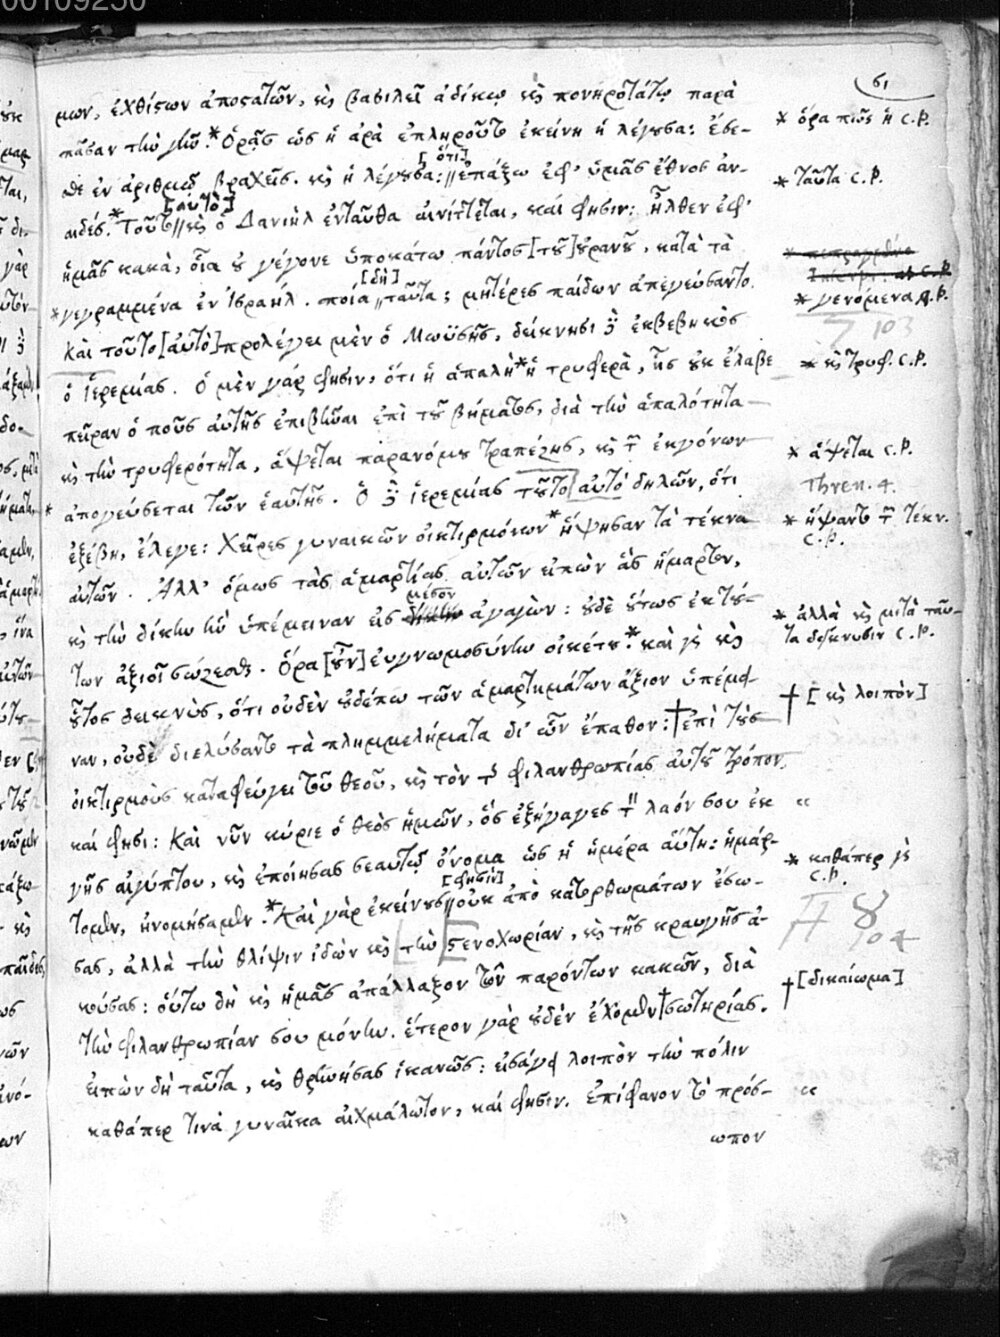 00109250
61
μων, ἐχθίστων ἀποστατῶν, καὶ βασιλεῖ ἀδίκῳ καὶ πονηροτάτῳ παρὰ
πᾶσαν τὴν γῆν.* Ὁρᾷς ὡς ἡ ἀρὰ ἐπληροῦτο ἐκείνη ἡ λέγουσα: ἔσε-
* ὅρα πῶς ἡ C.P.
σθε ἐν ἀριθμῷ βραχεῖς. καὶ ἡ λέγουσα: [ὅτι] // ἐπάξω ἐφ' ὑμᾶς ἔθνος ἀν-
αιδές.* Τοῦτο [αὐτὸ] // καὶ ὁ Δανιὴλ ἐνταῦθα αἰνίττεται, καί φησιν: Ἦλθεν ἐφ'
* ταῦτα C.P.
ἡμᾶς κακὰ, οἷα οὐ γέγονε ὑποκάτω παντὸς [τοῦ] οὐρανοῦ, κατὰ τὰ
* γεγραμμένα ἐν Ἰσραήλ. ποῖα [δὴ] // ταῦτα; μητέρες παίδων ἀπεγεύσαντο.
* γενόμενα A.P.
103
Καὶ τοῦτο [αὐτὸ] προλέγει μὲν ὁ Μωϋσῆς, δείκνυσι δὲ ἐκβεβηκὸς
ὁ Ἱερεμίας. Ὁ μὲν γάρ φησιν, ὅτι ἡ ἁπαλὴ * ἡ τρυφερὰ, ἧς οὐκ ἔλαβε
* καὶ τρυφ. C.P.
πεῖραν ὁ ποῦς αὐτῆς ἐπιβῆναι ἐπὶ τοῦ βήματος, διὰ τὴν ἁπαλότητα
καὶ τὴν τρυφερότητα, ἅψεται παρανόμου τραπέζης, καὶ τῶν ἐκγόνων
* ἅψεται C.P.
* ἀπογεύσεται τῶν ἑαυτῆς. Ὁ δὲ Ἱερεμίας τοῦτο [αὐτὸ] δηλῶν, ὅτι
Thren. 4.
ἐξέβη, ἔλεγε: Χεῖρες γυναικῶν οἰκτιρμόνων * ἥψησαν τὰ τέκνα
* ἥψαντο τῶν τέκν. C.P.
αὐτῶν. Ἀλλ' ὅμως τὰς ἁμαρτίας αὐτῶν εἰπὼν ἃς ἥμαρτον,
καὶ τὴν δίκην ἣν ὑπέμειναν εἰς μέσον ἀγαγὼν: οὐδὲ οὕτως ἐκ τού-
* ἀλλὰ καὶ μετὰ ταῦ-
τα δείκνυσιν C.P.
των ἀξιοῖ σώζεσθαι. Ὅρα [οὖν] εὐγνωμοσύνην οἰκέτου.* καὶ γὰρ καὶ
οὗτος δεικνὺς, ὅτι οὐδὲν οὐδέπω τῶν ἁμαρτημάτων ἄξιον ὑπέμει-
† [καὶ λοιπὸν]
ναν, οὐδὲ διελύσαντο τὰ πλημμελήματα δι' ὧν ἔπαθον: † ἐπὶ τοὺς
οἰκτιρμοὺς καταφεύγει τοῦ θεοῦ, καὶ τὸν τῆς φιλανθρωπίας αὐτοῦ τρόπον,
καί φησι: Καὶ νῦν κύριε ὁ θεὸς ἡμῶν, ὃς ἐξήγαγες τὸν λαόν σου ἐκ
“
γῆς αἰγύπτου, καὶ ἐποίησας σεαυτῷ ὄνομα ὡς ἡ ἡμέρα αὕτη: ἡμάρ-
τομεν, ἠνομήσαμεν.* Καὶ γὰρ ἐκείνους [φησὶν] // οὐκ ἀπὸ κατορθωμάτων ἔσω-
* καθάπερ γὰρ C.P.
σας, ἀλλὰ τὴν θλίψιν ἰδὼν καὶ τὴν στενοχωρίαν, καὶ τῆς κραυγῆς ἀ-
8
104
κούσας: οὕτω δὴ καὶ ἡμᾶς ἀπάλλαξον τῶν παρόντων κακῶν, διὰ
† [δικαίωμα]
τὴν φιλανθρωπίαν σου μόνην. ἕτερον γὰρ οὐδὲν ἔχομεν † σωτηρίας.
εἰπὼν δὴ ταῦτα, καὶ θρηνήσας ἱκανῶς: εἰσάγει λοιπὸν τὴν πόλιν
καθάπερ τινὰ γυναῖκα αἰχμάλωτον, καί φησιν. ἐπίφανον τὸ πρόσ-
“
ωπον